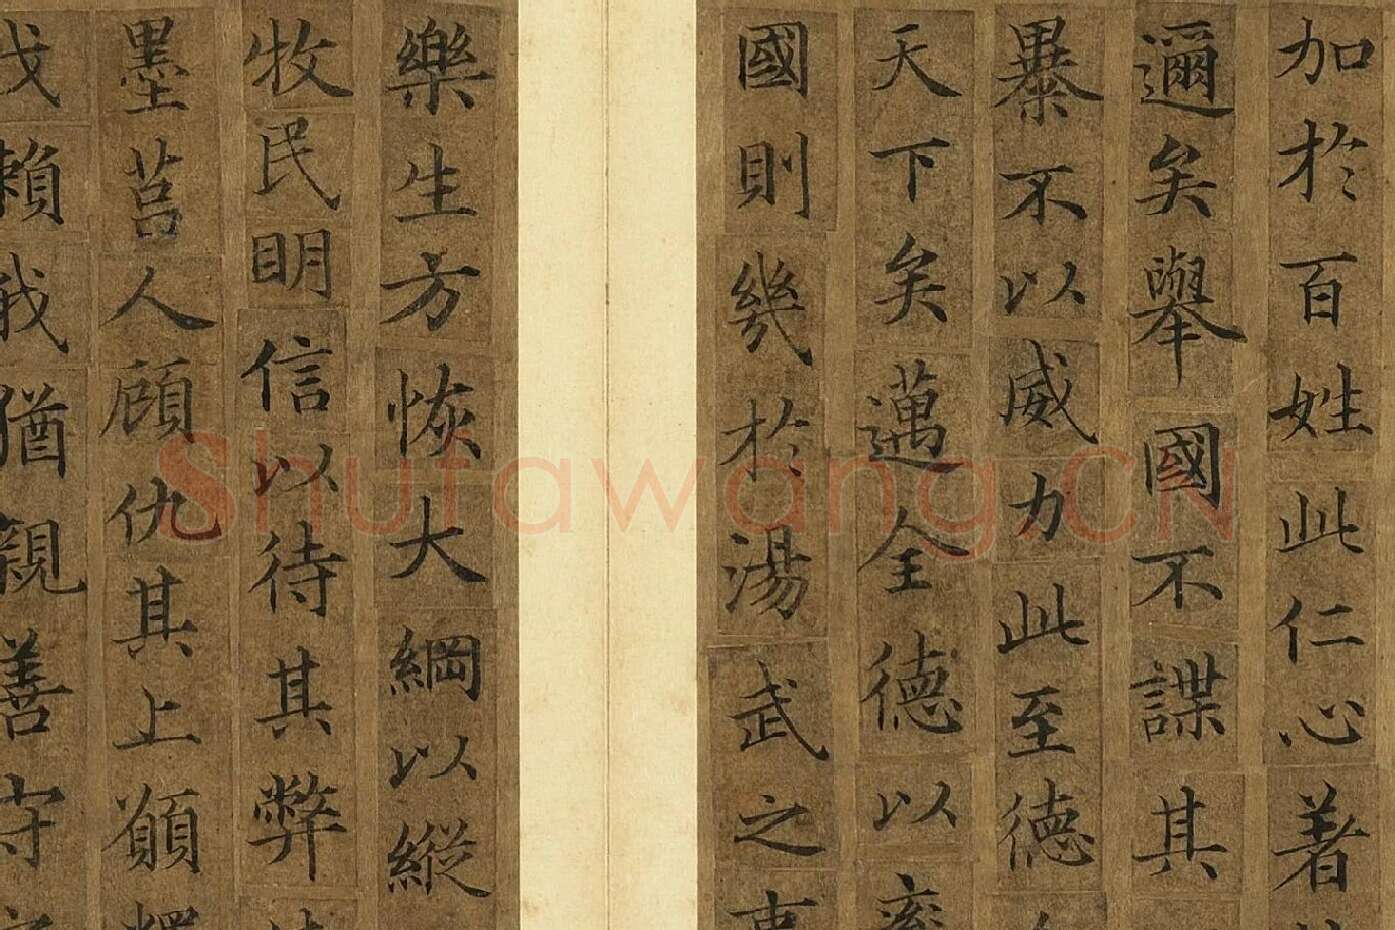 加於百姓此仁心著
邇矣舉國不謀其
㬥不以威力此至德
天下矣邁全德以率
國則幾於湯武之事
樂生方恢大綱以縱
牧民明信以待其弊
墨莒人顧仇其上願釋
戈賴我猶親善守
Shufawang.CN